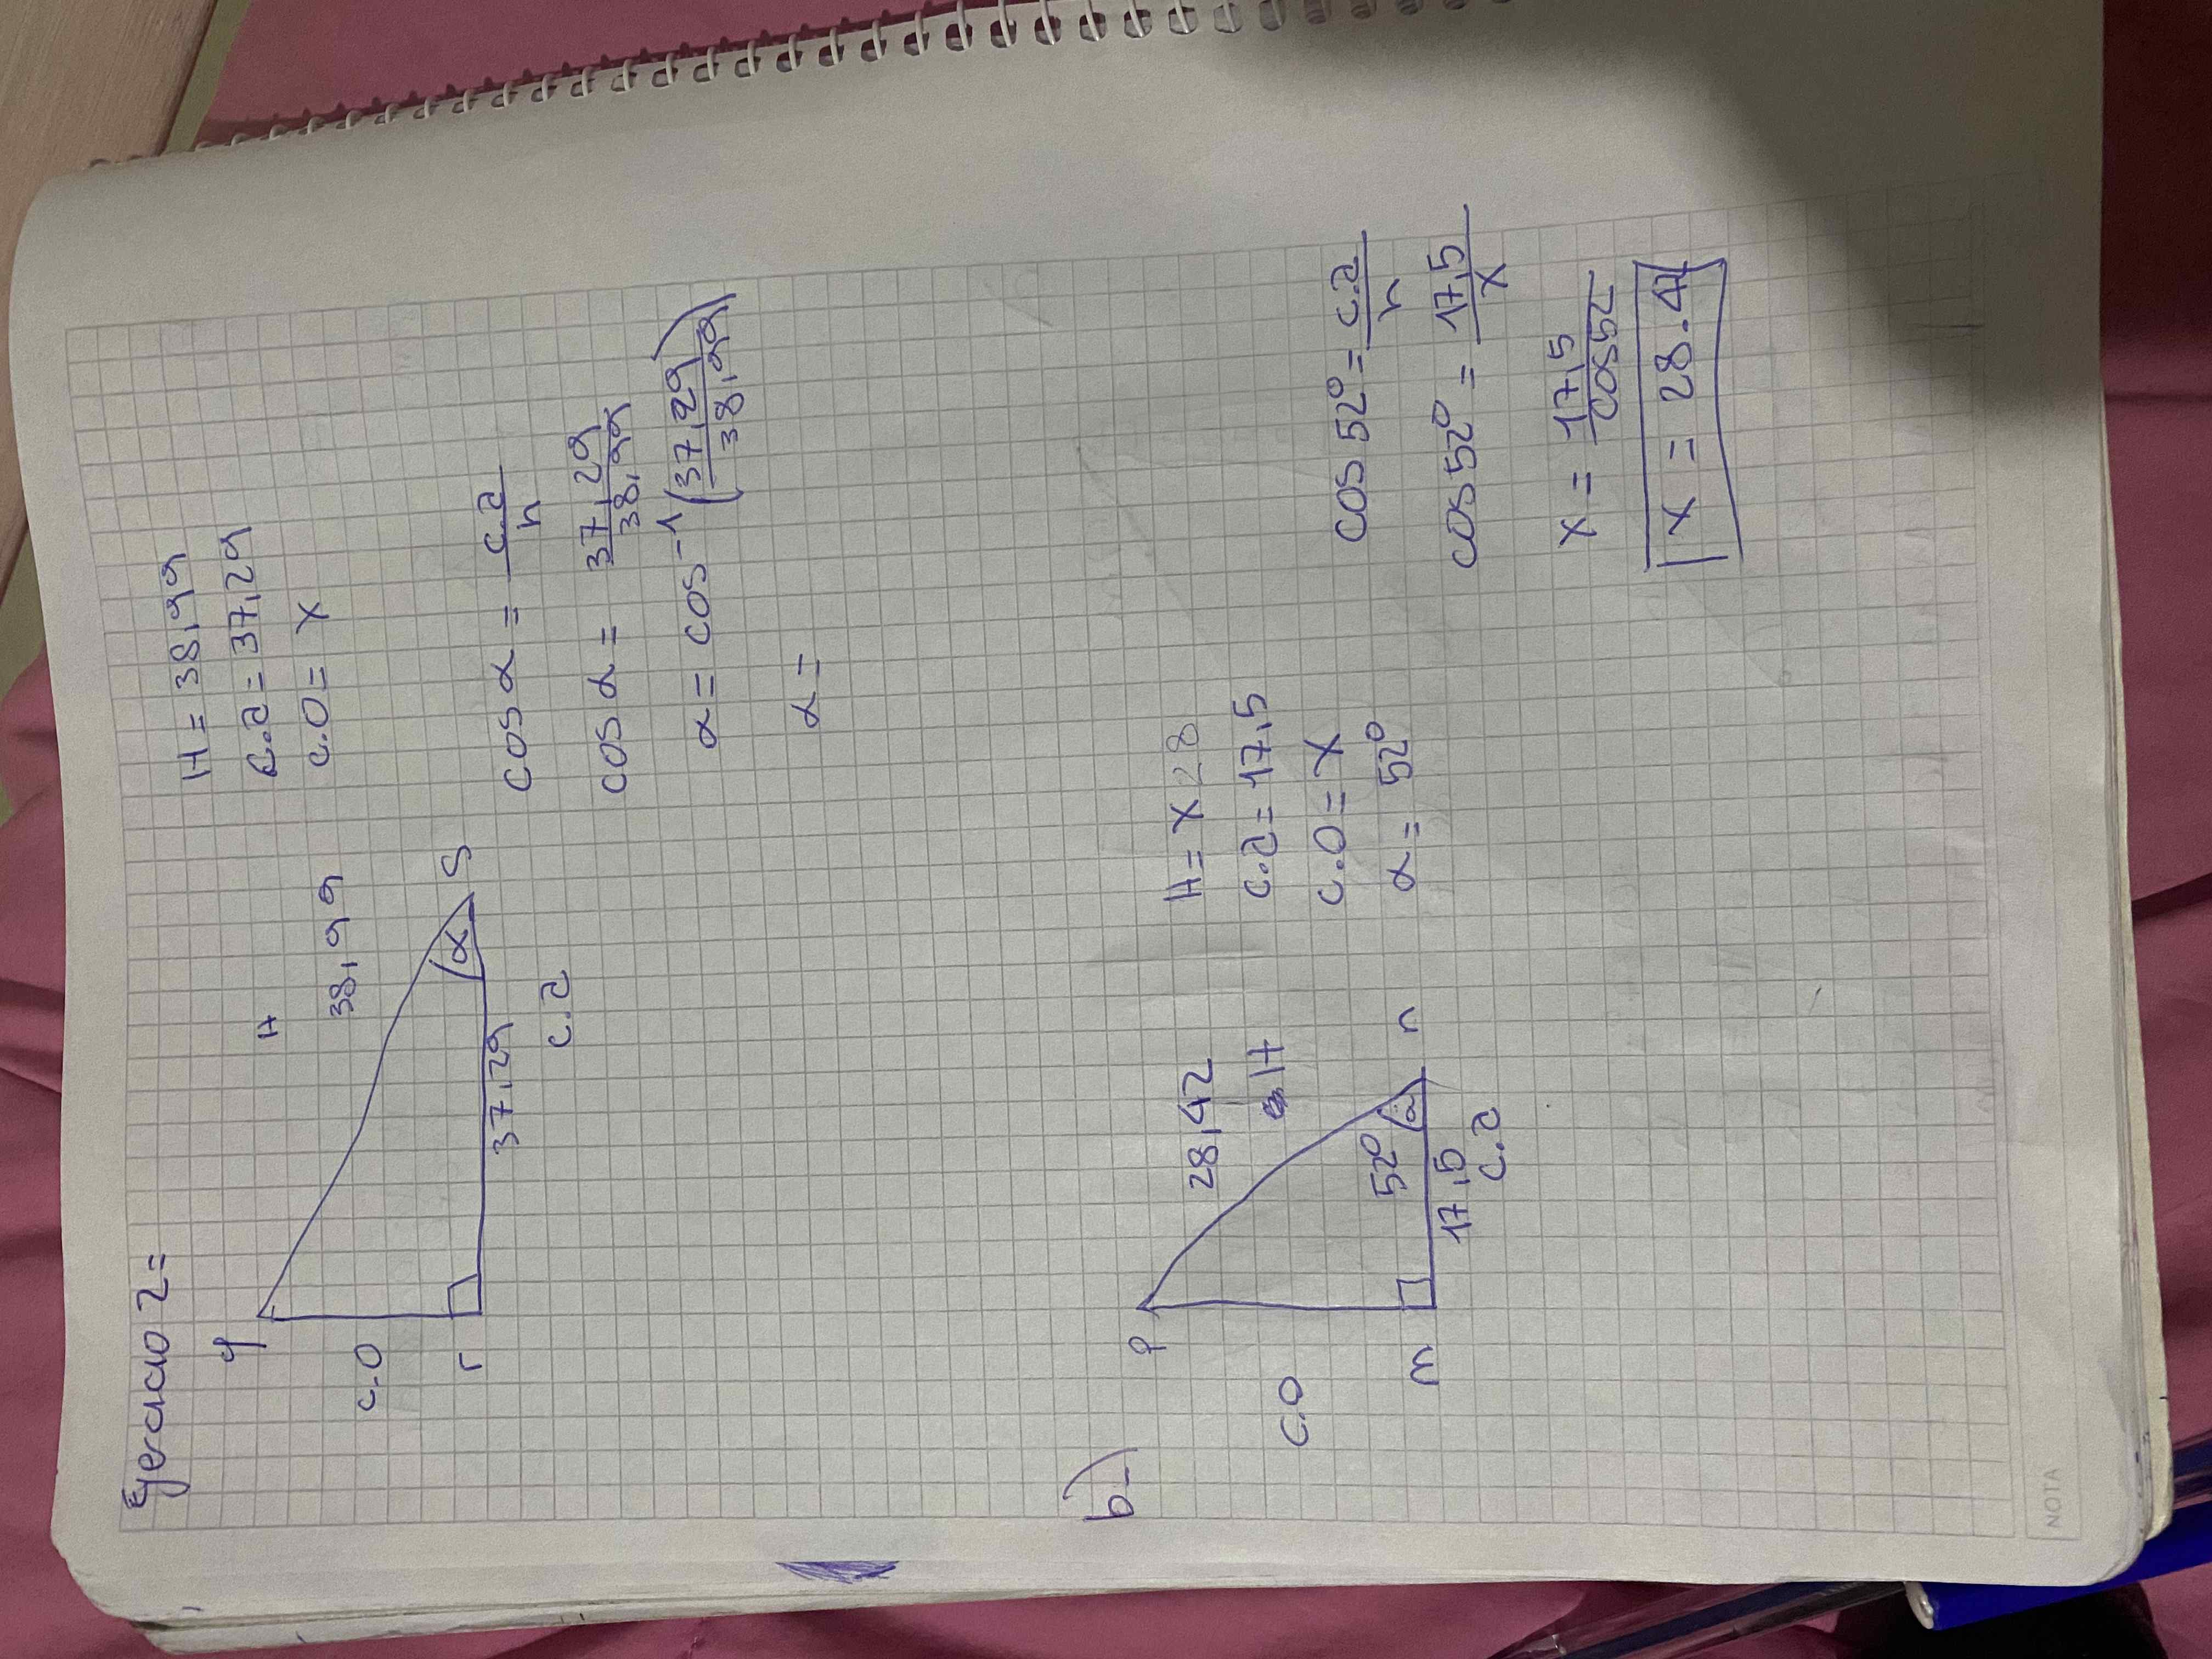 Ejercicio 2=
q
H
38,99
c.o
r
α
S
37,29
c.a
H = 38,99
c.a = 37,29
c.o = X
cos α = c.a / h
cos α = 37,29 / 38,99
α = cos⁻¹ (37,29 / 38,99)
α =
b-)
P
28,42
H
c.o
52º
m
n
17,5
c.a
H = X 28
c.a = 17,5
c.o = X
α = 52º
cos 52º = c.a / h
cos 52º = 17,5 / X
X = 17,5 / cos 52
X = 28.42
NOTA